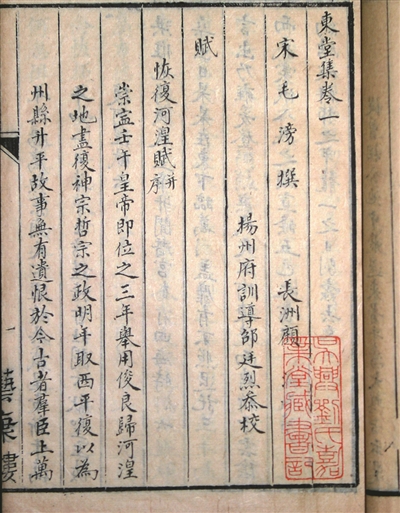 東堂集卷上
宋 毛 滂 撰 長洲顧
揚州府訓導邵廷烈恭校
賦
恢復河湟賦并序
崇寍壬午皇帝即位之三年舉用俊良歸河湟
之地盡復神宗哲宗之政明年取西平復以為
州縣升平故事無有遺恨於今古者羣臣上萬
一
藝海樓
吳興劉氏嘉
業堂藏書記